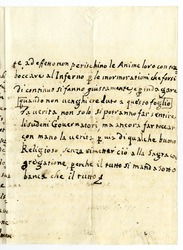 te, ad effeno non perischino le Anime loro con na
boccare al Inferno p le mormorationi che forsi
di continuo si fanno giustamente, e p indagare
quando non venghi creduto a questo foglio
la verita non solo si potranno far sentire
li sudeti Governatori ma ancora far toccar
con mano la verita p via di qualche buono
Religioso senza rimetter ciò alla Sagra con
gregatione, perche il tutto si manda sotto
banca che il tutto